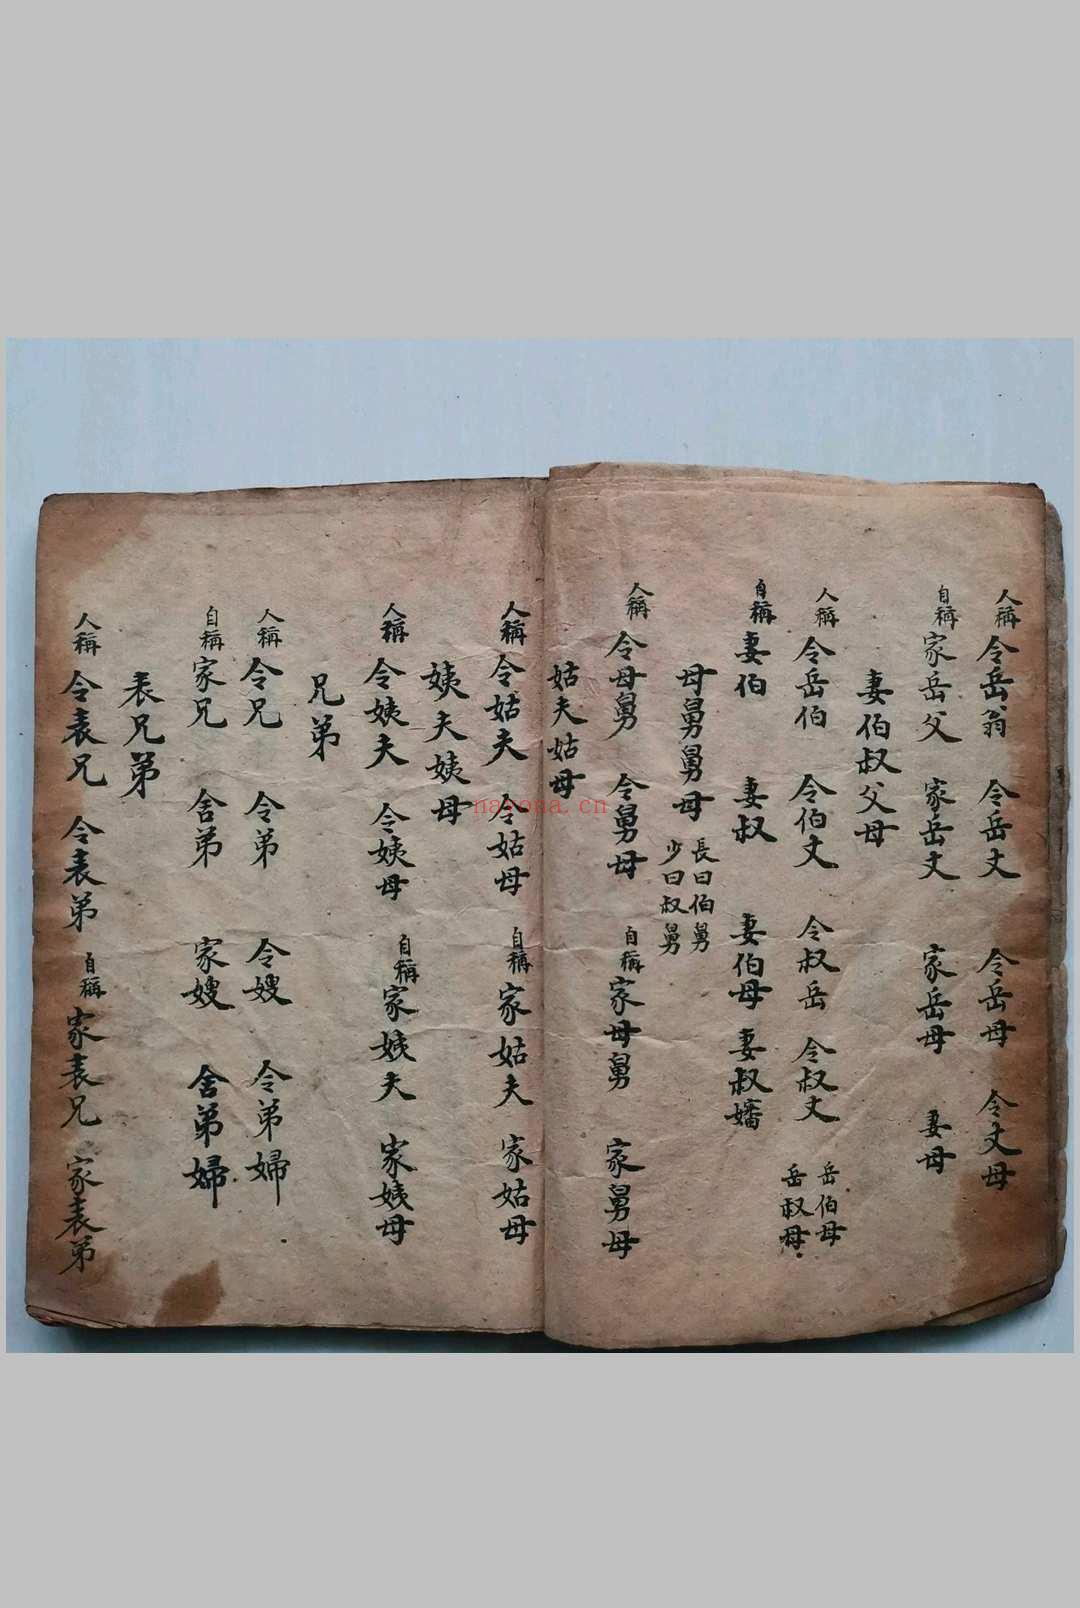 人稱 令岳翁 令岳丈 令岳母 令丈母
自稱 家岳父 家岳丈 家岳母 妻母
妻伯叔父母
人稱 令岳伯 令伯丈 令叔岳 令叔丈 岳伯母 岳叔母
自稱 妻伯 妻叔 妻伯母 妻叔嬸
母舅舅母 長曰伯舅 少曰叔舅
人稱 令母舅 令舅母 自稱 家母舅 家舅母
姑夫姑母
人稱 令姑夫 令姑母 自稱 家姑夫 家姑母
姨夫姨母
人稱 令姨夫 令姨母 自稱 家姨夫 家姨母
兄弟
人稱 令兄 令弟 令嫂 令弟婦
自稱 家兄 舍弟 家嫂 舍弟婦
表兄弟
人稱 令表兄 令表弟 自稱 家表兄 家表弟
nayona.cn